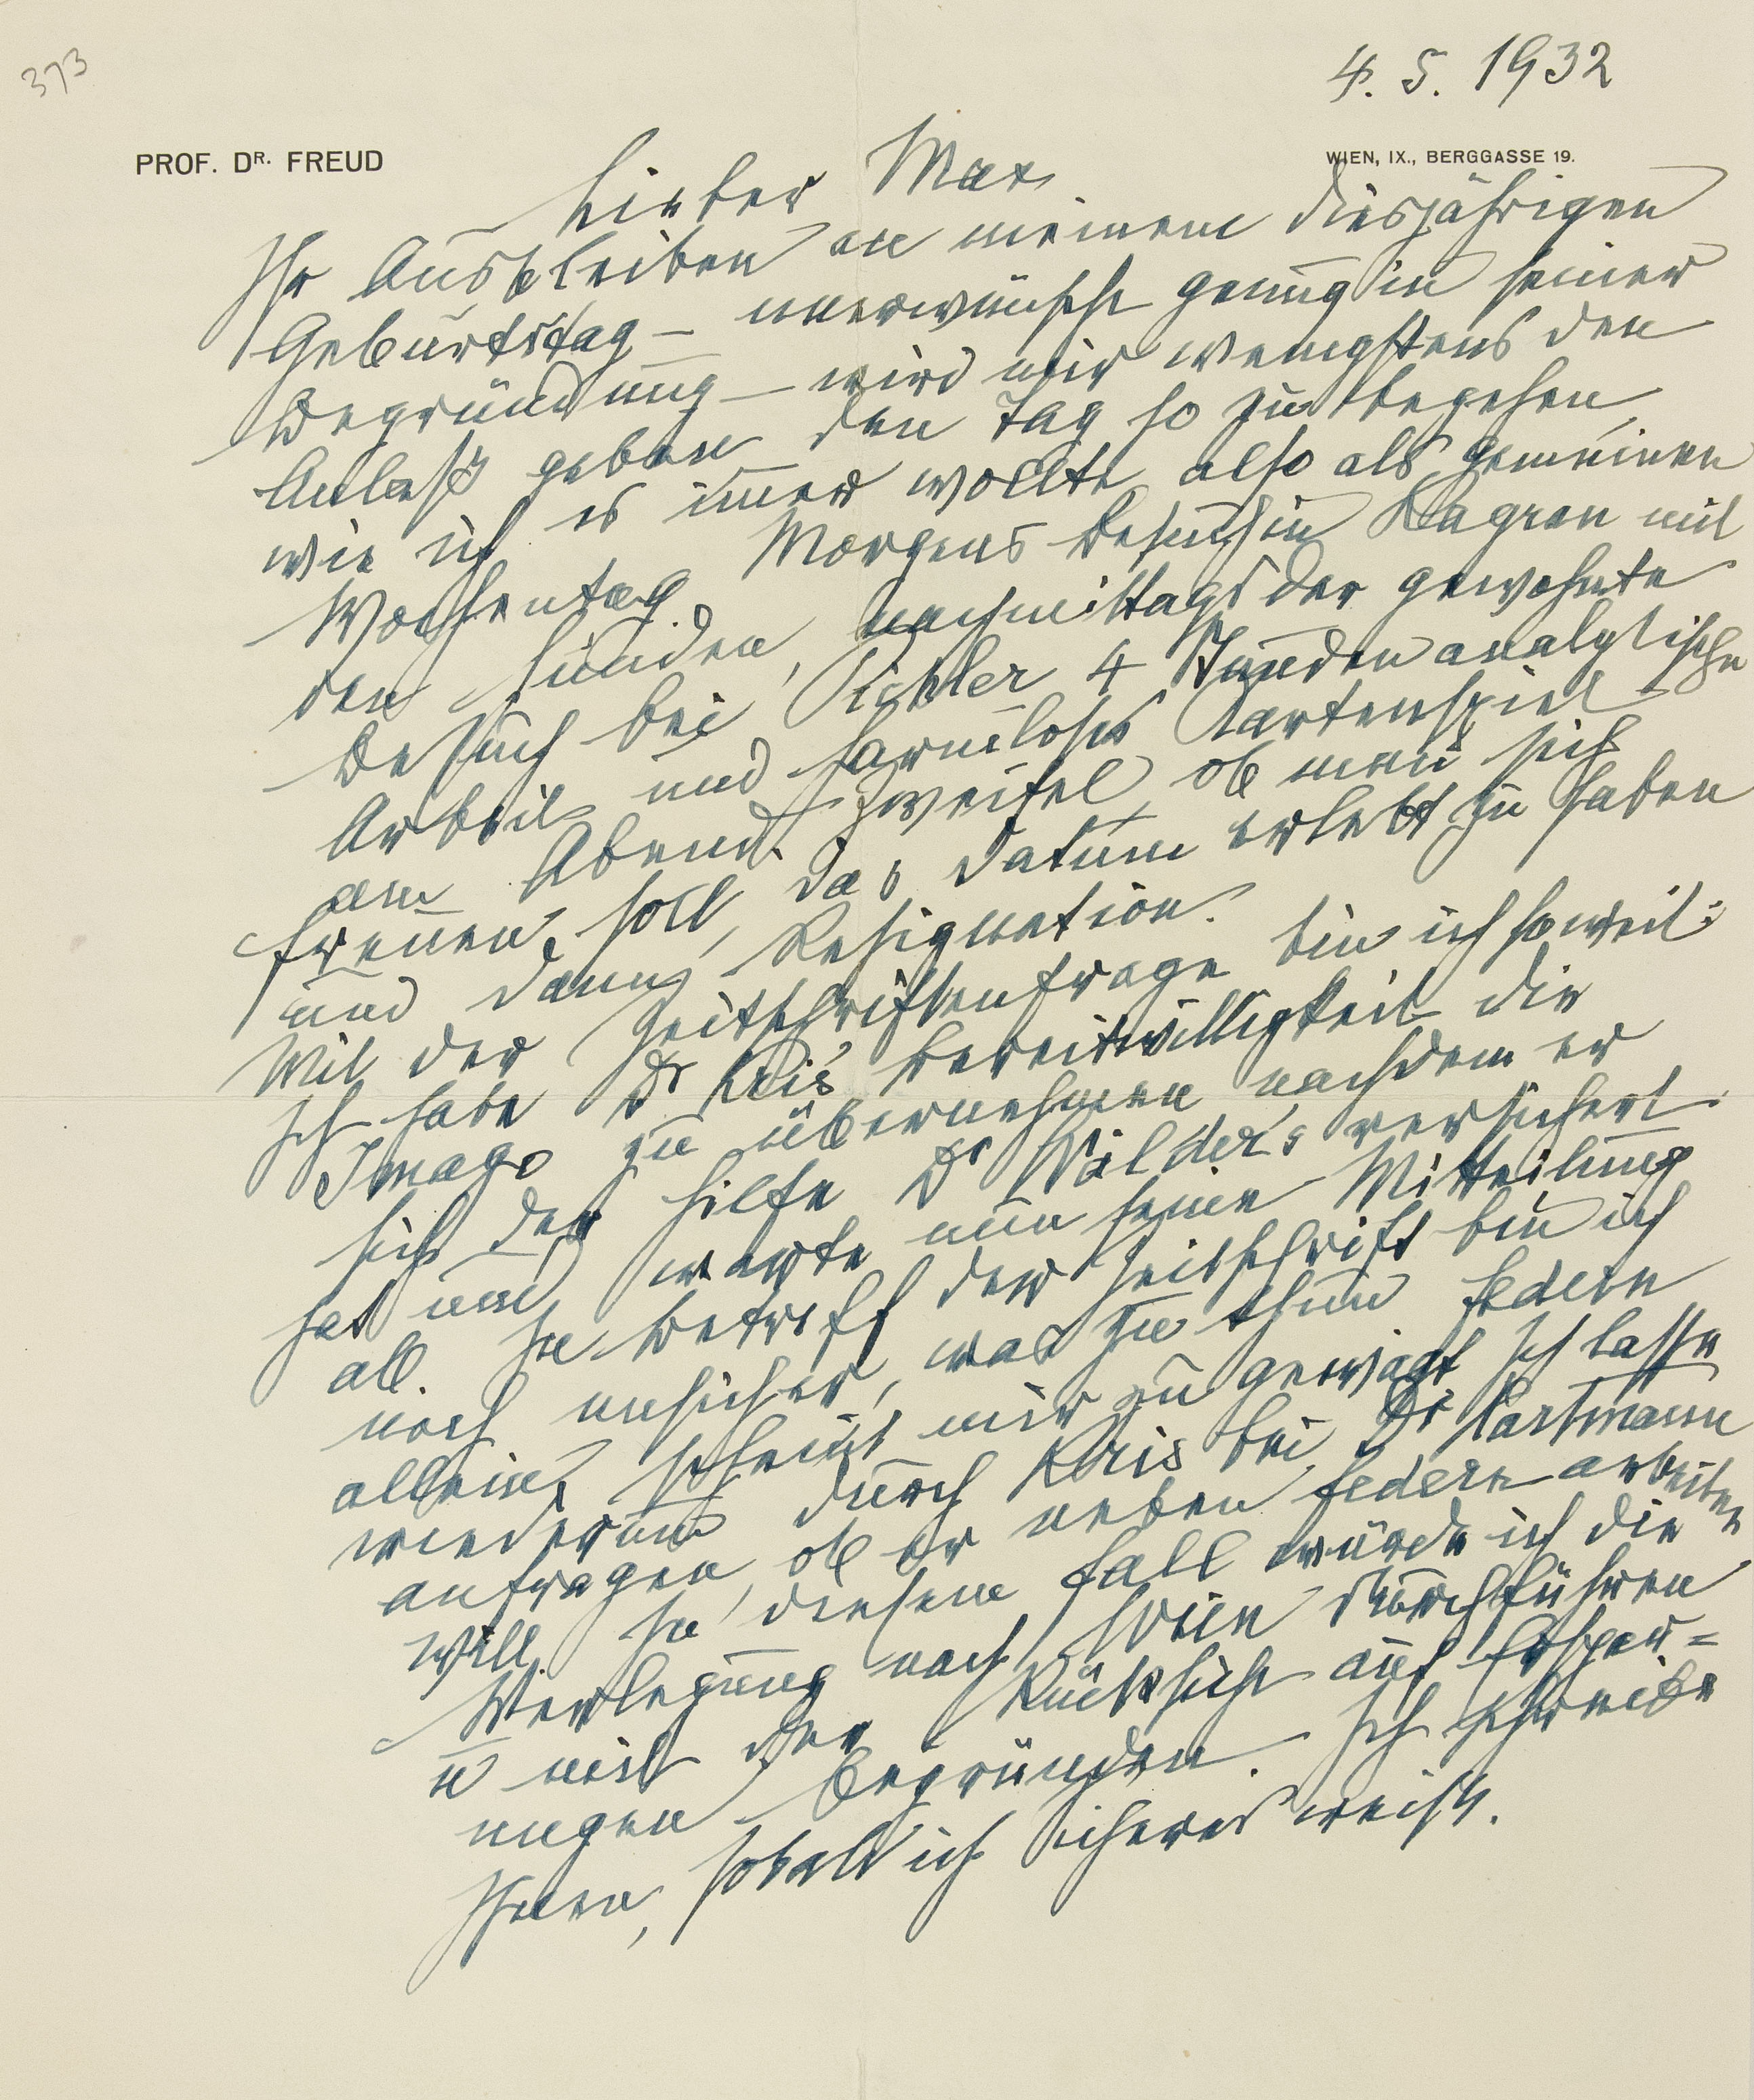 373
4. 5. 1932
PROF. DR. FREUD
WIEN, IX., BERGGASSE 19.
Lieber Max
Ihr Ausbleiben an meinem diesjährigen
Geburtstag – unerwünscht genug in seiner
Begründung – wird mir wenigstens den
Anlaß geben den Tag so zu begehen,
wie ich es immer wollte, also als gemeinen
Wochentag. Morgens Besuch in Kagran mit
den Hunden, nachmittags der gewohnte
Besuch bei Pichler, 4 Stunden analytische
Arbeit und harmloses Kartenspiel
am Abend. Zweifel, ob man sich
freuen soll, das Datum erlebt zu haben
und dann Resignation.
Mit der Zeitschriftenfrage bin ich soweit:
Ich habe Dr Kris' Bereitwilligkeit die
Imago zu übernehmen nachdem er
sich der Hilfe Dr Wälder's versichert
hat und warte nun seine Mitteilung
ab. In Betreff der Zeitschrift bin ich
noch unsicher, was zu thun. Federn
allein scheint mir zu gewagt. Ich lasse
wiederum durch Kris bei Dr Hartmann
anfragen, ob er neben Federn arbeiten
will. In diesem Fall würde ich die
Verlegung nach Wien durchführen
u mit der Rücksicht auf Erspar=
nugen begründen. Ich schreibe
Ihnen, sobald ich sicheres weiß.